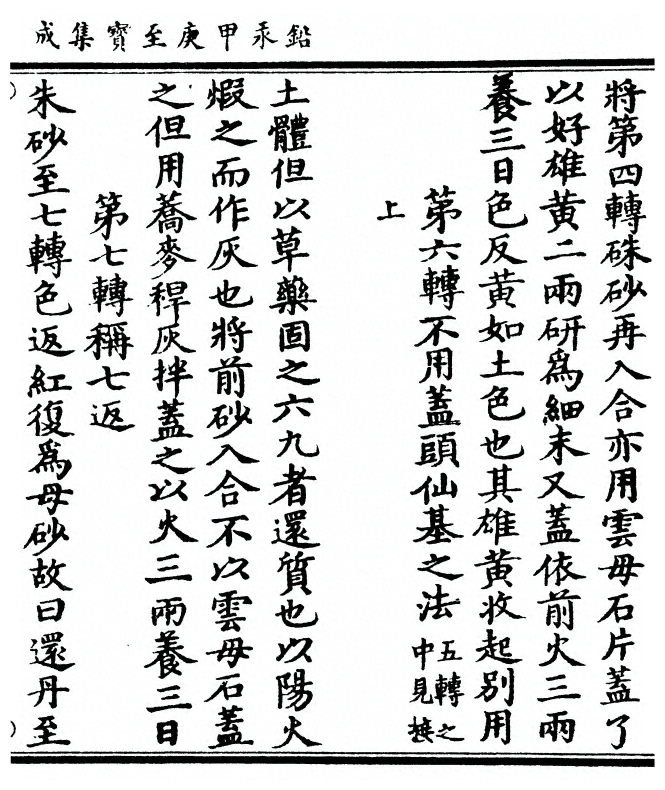 鉛汞甲庚至寶集成
將第四轉硃砂再入合亦用雲母石片蓋了
以好雄黄二兩研爲細末又蓋依前火三兩
養三日色反黄如土色也其雄黄收起别用
第六轉不用蓋頭仙基之法五轉之中見接
上
土體但以草藥固之六九者還質也以陽火
煆之而作灰也將前砂入合不以雲母石蓋
之但用蕎麥稈灰拌蓋之以火三兩養三日
第七轉稱七返
朱砂至七轉色返紅復爲母砂故曰還丹至